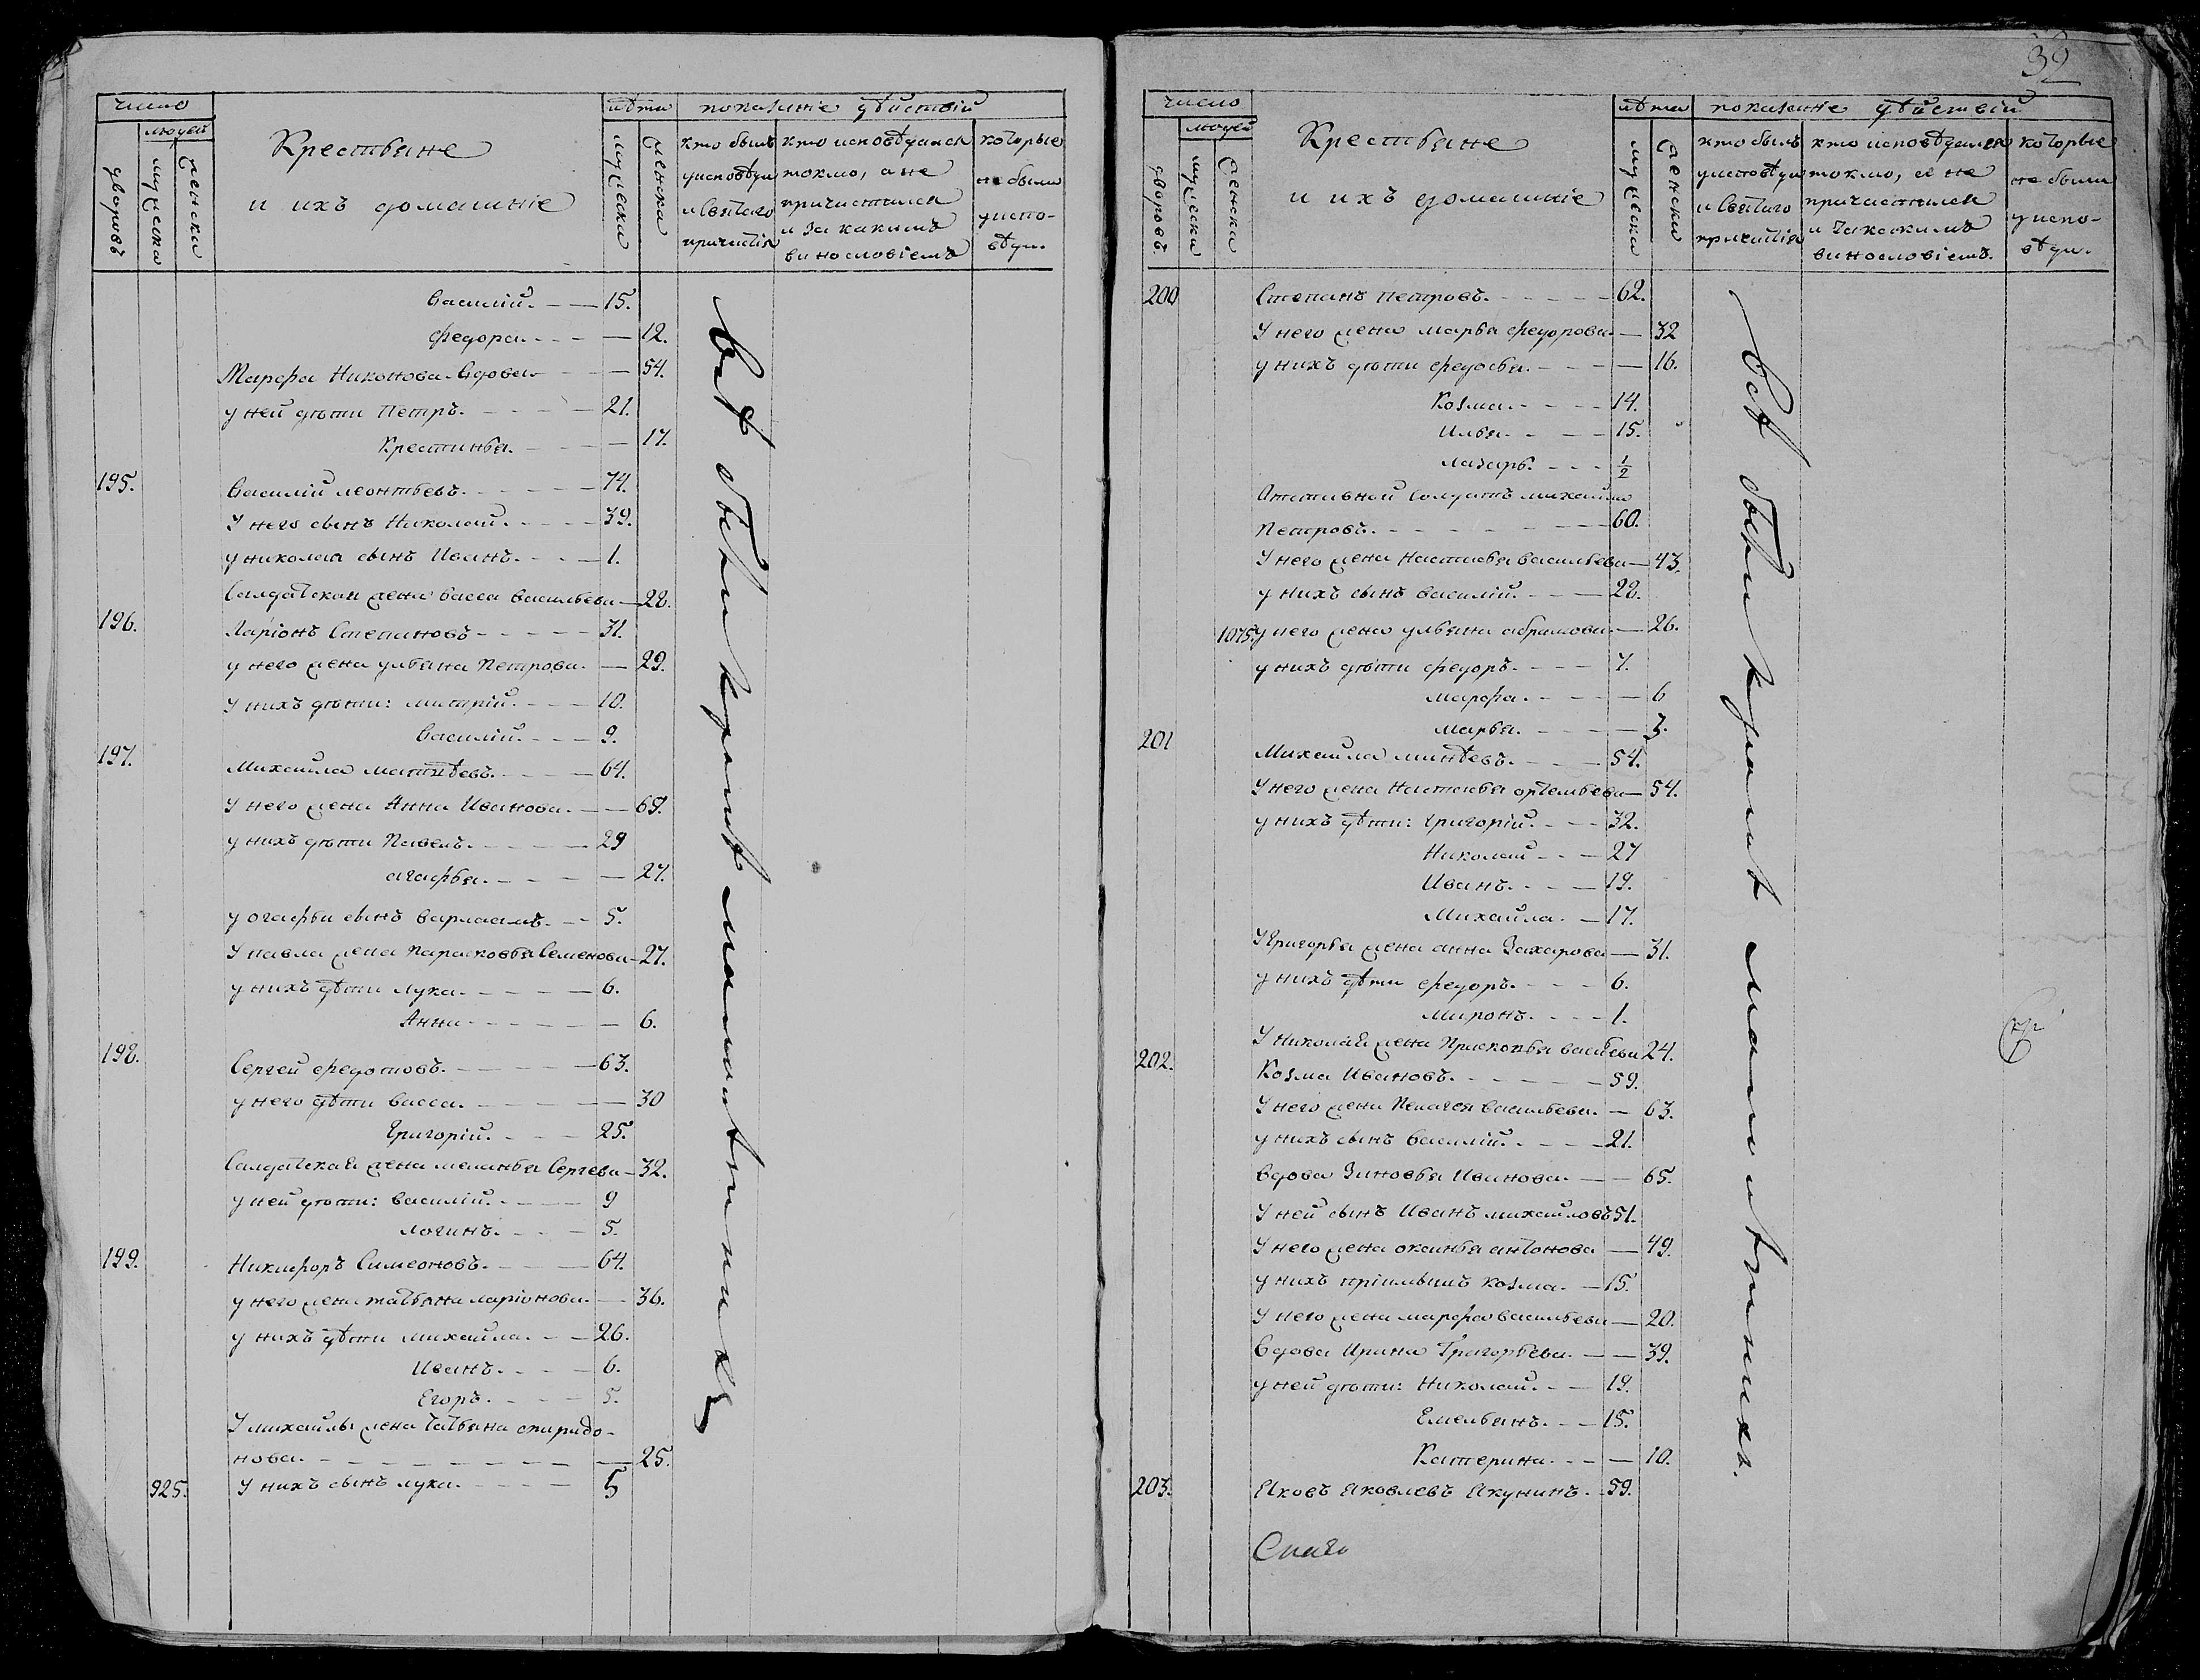 число
людей
дворовъ
мужеска
женска
Крестьяне
и ихъ домашніе
лѣта
мужеска
женска
показаніе дѣйствій
кто былъ
у исповѣди
и святаго
причастія
кто исповѣдался
токмо, а не
причастился
и за какимъ
винословіемъ
которые
не были
у испо-
вѣди.
Василій. 15.
Федора. 12.
Марфа Никонова вдова 54.
у ней дѣти Петръ. 21.
Крестинья. 17.
195. Василій Леонтьевъ. 74.
У него сынъ Николай. 39.
у Николая сынъ Иванъ. 1.
Салдатская жена Васса Васильева 28.
196. Ларіонъ Степановъ 31.
у него жена Ульяна Петрова. 29.
У нихъ дѣти: Митрій. 10.
Василій. 9.
197. Михайла Матвѣевъ. 64.
У него жена Анна Иванова. 65.
у нихъ дѣти Павелъ. 29
агафья. 27.
у огафьи сынъ Варлаамъ. 5.
У Павла жена Парасковья Семенова 27.
у нихъ дѣти Лука. 6.
Анна. 6.
198. Сергей Федотовъ. 63.
у него дѣти Васса. 30
Григорій. 25.
Салдатская жена Меланья Сергева 32.
у ней дѣти: Василій. 9
Логинъ. 5.
199. Никифоръ Симеоновъ. 64.
у него жена Татьяна Ларіонова. 36.
у нихъ дѣти Михайла. 26.
Иванъ. 6.
Егоръ. 5.
У Михайлы жена Татьяна Спиридо-
нова. 25.
925. У нихъ сынъ Лука. 5
всѣ были кромѣ малолѣтнихъ
32
число
людей
дворовъ.
мужеска
женска
Крестьяне
и ихъ домашніе
лѣта
мужеска
женска
показаніе дѣйствій
кто былъ
у исповѣди
и святаго
причастія
кто исповѣдался
токмо, а не
причастился
и за какимъ
винословіемъ.
которые
не были
у испо-
вѣди.
200 Степанъ Петровъ. 62.
У него жена Марья Федорова 32
у нихъ дѣти Федосья. 16.
Козма. 14.
Илья. 15.
Лазарь. 1/2
Отставной Солдатъ Михайла
Петровъ. 60.
У него жена Настасья Васильева 43.
у нихъ сынъ Василій. 28.
1075. у него жена Ульяна Абрамова. 26.
у нихъ дѣти Федоръ. 7.
Марфа. 6
Марья. 3.
201 Михайла Минѣевъ. 54.
У него жена Настасья Ортемьева 54.
у нихъ дѣти: Григорій. 32.
Николай 27
Иванъ. 19.
Михайла. 17.
У Григорья жена Анна Захарова 31.
у нихъ дѣти Федоръ. 6.
Миронъ. 1.
У Николая жена Прасковья Васильева 24.
202. Козма Ивановъ. 59.
У него жена Пелагея Васильева. 63.
у нихъ сынъ Василій. 21.
Вдова Зиновья Иванова. 65.
У ней сынъ Иванъ Михайловъ 51.
У него жена Оксинья Антонова 49.
у нихъ пріимышъ Козма. 15.
У него жена Марфа Васильева 20.
Вдова Ирина Григорьева. 39.
у ней дѣти: Николай. 19.
Емельянъ. 15.
Катерина. 10.
203. Яковъ Яковлевъ Якунинъ. 59.
всѣ были кромѣ малолѣтнихъ.